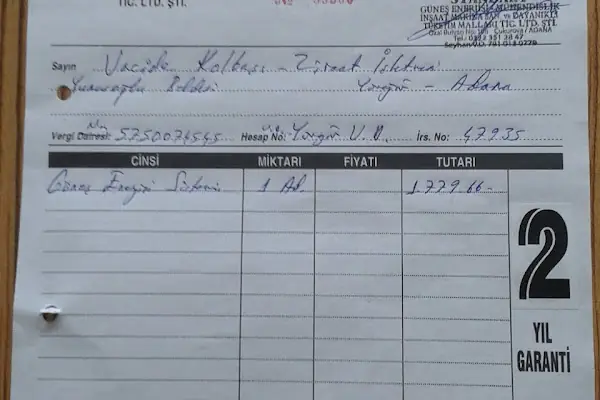 TİC. LTD. ŞTİ.
No
GÜNEŞ ENERJİSİ MÜHENDİSLİK
İNŞAAT MAKİNA SAN. ve DAYANIKLI
TÜKETİM MALLARI TİC. LTD. ŞTİ.
Çukurova / ADANA
Seyhan V.D. 781 013 0779
Sayın Vacide Kolbaşı - Ziraat
Beldesi Yüreğir - Adana
Vergi Dairesi: No 5750074545 Hesap No: Yüreğir V.D. İrs. No: 47935
CİNSİ MİKTARI FİYATI TUTARI
Güneş Enerjisi Sistemi 1 Ad. 1.779.66-
2
YIL
GARANTİ